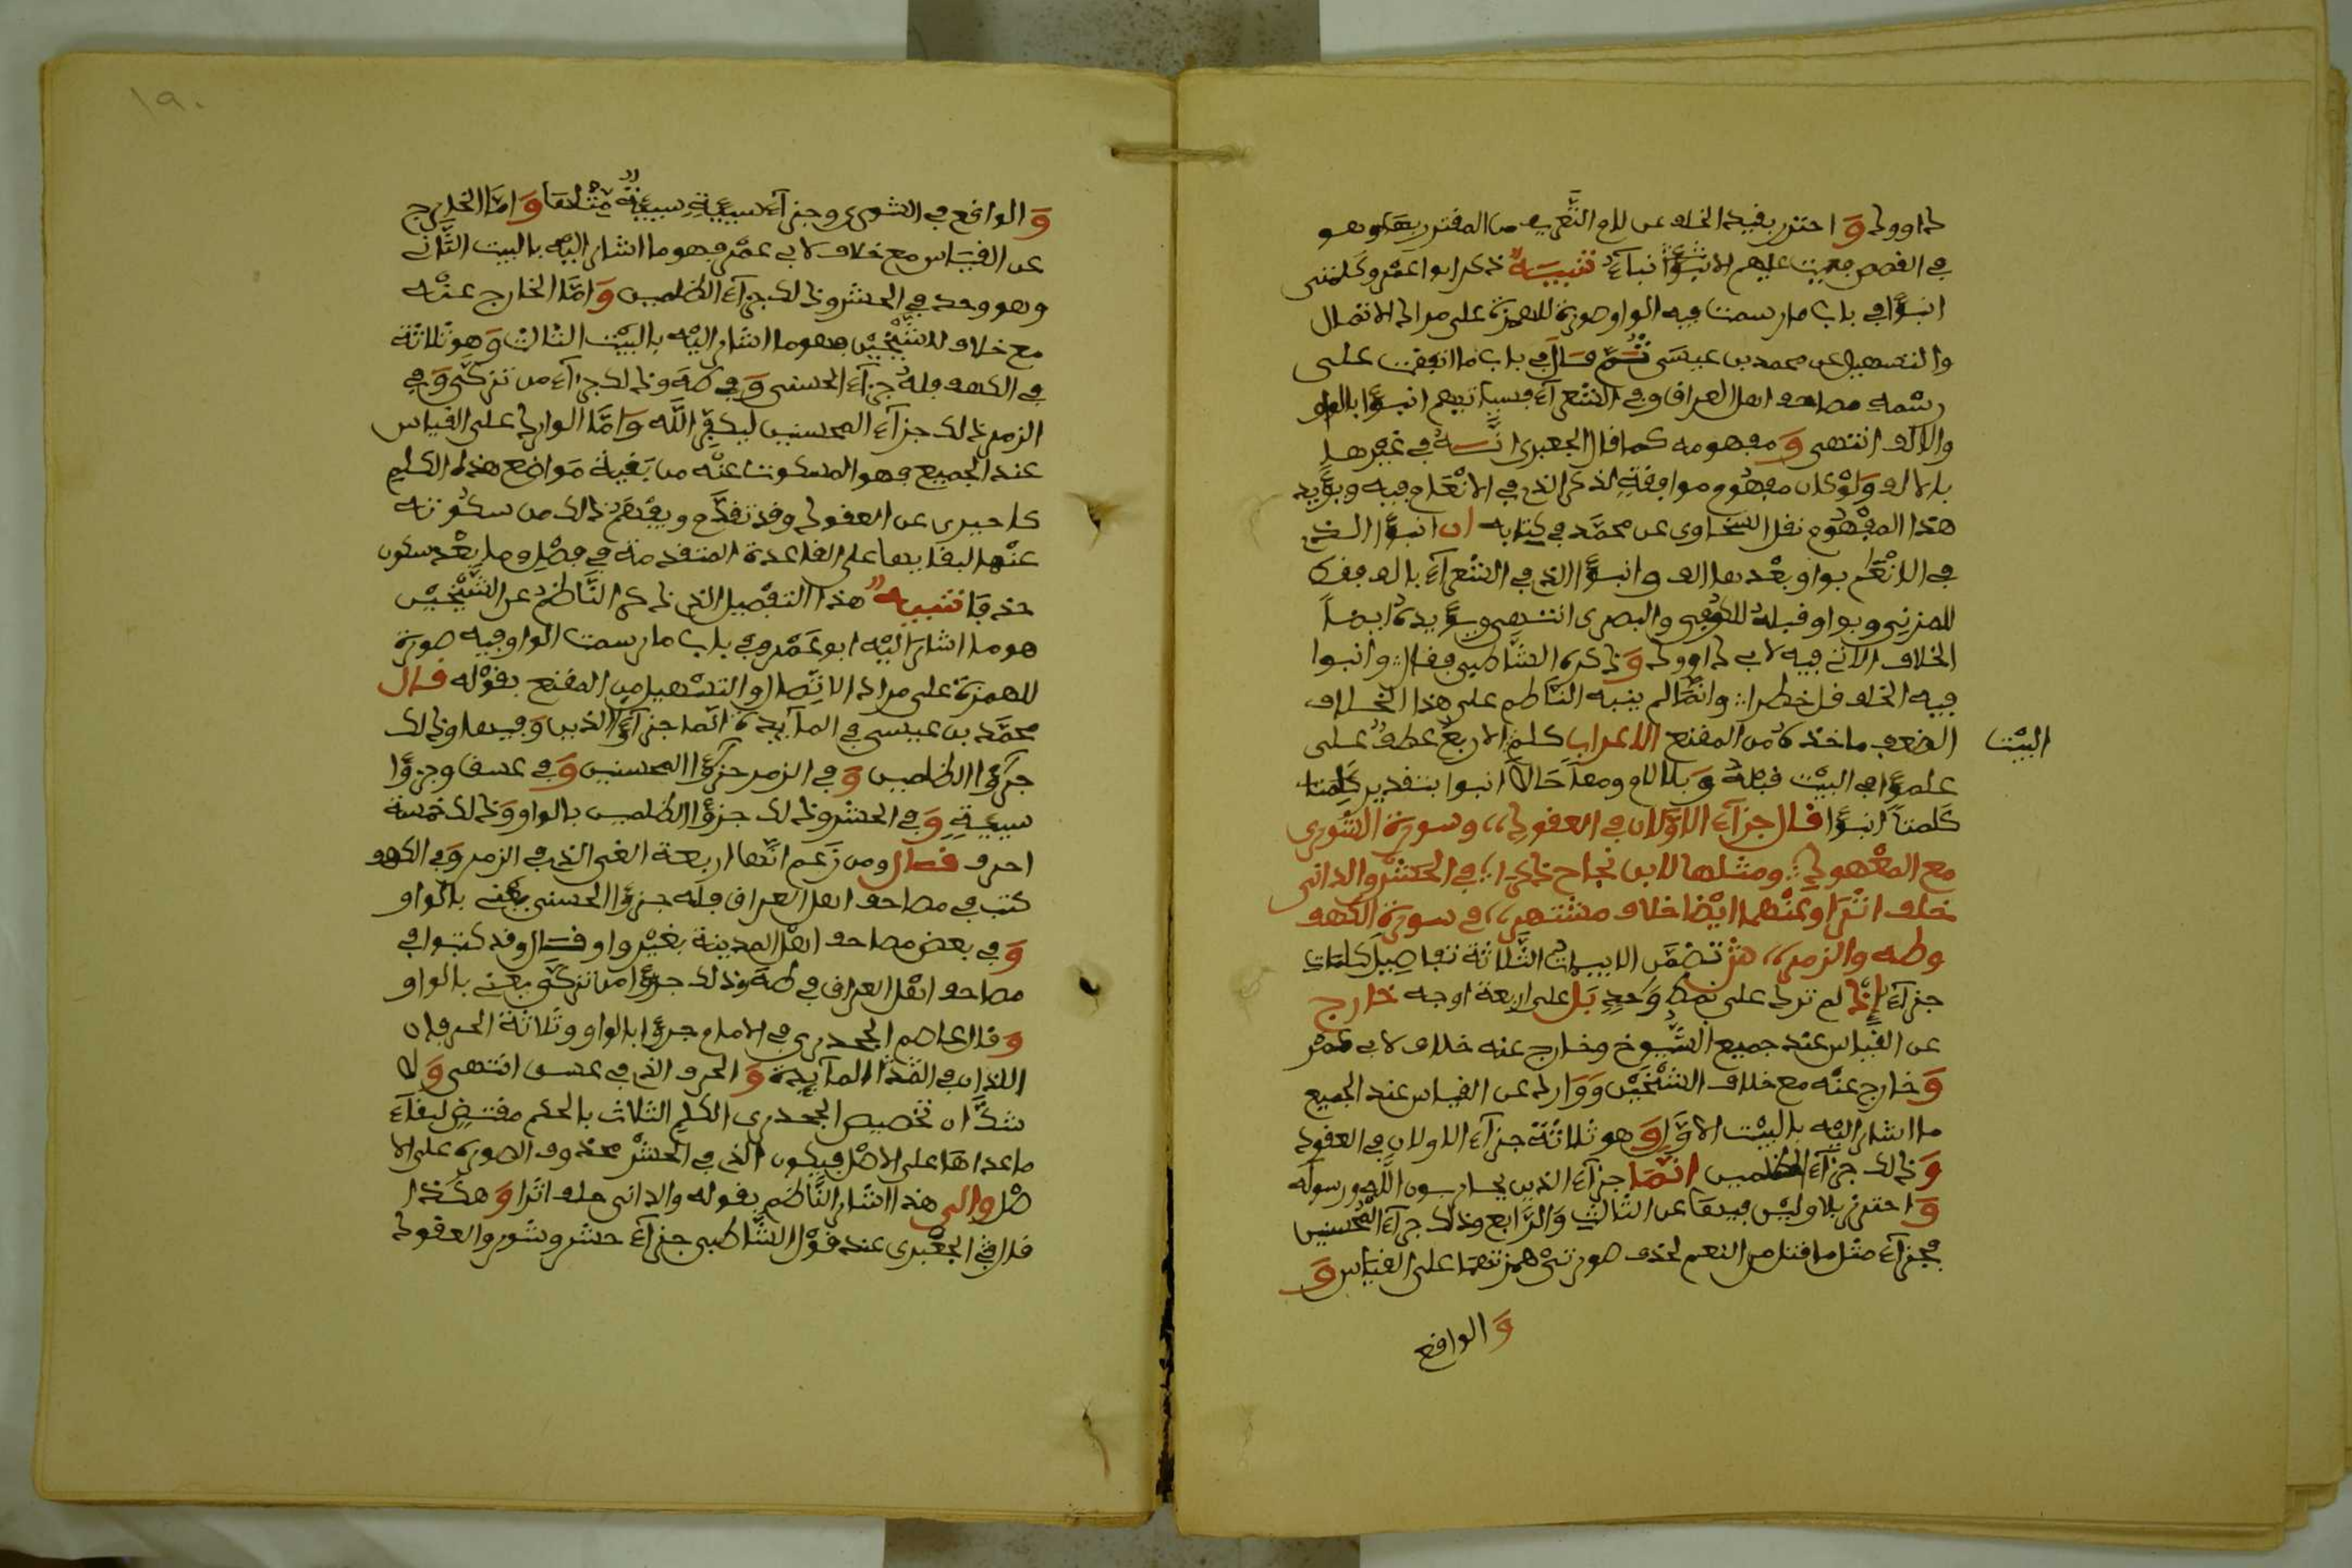 داوود وَ احترز بقيد الخلف عن لام التَّعريف من المقترن بها وهو
في القصص فعميت عليهم الانبآء تنبيه ذكر ابوا عَمْرو كلمتى
انبـٰٓؤا في باب ما رسمت فيه الواو صورة للهمزة على مراد الاتصال
والتسهيل عن محمد بن عيسَى ثُمَّ قال في باب ما اتفقت على
رسْمه مصاحف اهل العراق وفي الشعرآء فسياتيهم انبـٰٓؤا بالواو
والالف انتهى وَ مفهومه كما قال الجعبرى انَّـه في غيرها
بالالف وَلَوْ كان مفهوم موافقةِ لذكر الذى في الانْعَام فيه ويؤيد
هذا المفْهُوم نقل السَّخاوى عن محمَّد في كتابه ان انبـٰٓؤا الـذى
في الانْعَٰم بواو بعْدها الف وانبـٰٓؤا الذى في الشعرآء بالف فقط
للمدنِى وبواو قبلهُ للكُوفِى والبصرى انتـهى ويـؤيدهُ ايضاً
الخلاف الاتى فيه لابى داوود وَذكره الشَّاطبي فقال ؞ وانبوا
فيه الخلف قل خطرا ؞ وانَّما لم ينبه النَّاظم على هذا الخـلاف
لضعف ماخذهُ من المقنع الاعراب كلمٰ الاربعُ عطفُ على
البيْت
علمـٰٓؤا في البيْت قبلهُ وَ بلا لام ومعاً حَالا انبوا بتقدير كلمتا
كَلمتا انبـٰٓؤا قال جزآء الاوَّلان في العقود ،، وسورة الشورى
مع المعْهود ؞ ومثلها لابن نجاح ذكرا ؞ في الحَشْر والدانى
خلف اثرَا وعنهما ايْضا خلاف مشتهر ،، في سورة الكهف
وطه والزمر ،، ش تضمَّن الابيات الثَّلاثة تفاصِيل كلمات
جزآء إذْ لم ترد على نمط وَحدٍ بَل على اربعة اوجه خارج
عن القياس عند جميع الشُّيوخ وخارج عنه خلاف لابى عَمْرو
وَ خارج عنْه مع خلاف الشيْخَيْن وَوَارد عن القياس عند الجميع
ما اشار اليْه بالبيْت الاوَّل وَ هو ثلاثة جزآء الاولان في العقود
وَذلك جزآء الظلمين انَّمَا جزآء الذين يحاربـون اللَّه ورسوله
وَ احترز بلاولَيْن فيها عن الثالث وَالرَّابع وذلك جزآء المحْسنين
فجزآء مثل ما قتل من النعم لحذف صورتَىْ همزتهمَا على القيَاس وَ
وَ الواقع
١٩٠
وَ الواقع في الشورى وجزآء سيئةٍ سيئةٌ مِّثْلها وَ امَّا الخارج
عن القيَاس مع خلاف لابى عمْرو فهو ما اشار اليْه بالبيت الثَّانى
وهو وحد في الحشر وذلك جزآء الظلمين وَ امَّا الخارج عنْه
مع خلاف للشيْخيْن فهو ما اشار اليْه بالبيْت الثالث وَهو ثلاثة
في الكهف فلهُ جزآء الحسنى وَ في طَه وذلك جزآء من تزكَّى وَفي
الزمر ذلك جزآء المحسنين ليكفِّر اللَّه وَامَّا الوارد على القياس
عند الجميع فهو المسكوت عنْه من بَقية مَواضع هذا الكلم
كاخيرى عن العقود وقد تقدَّم ويفْهَم ذلك من سكُوته
عنْها لبقايها على القاعدة المتقدمة في فصْل وما بعْد سكون
حذفا تنبيه هذا التفْصيل الذى ذكره النَّاظمُ عن الشيْخيْن
هو ما اشار اليْه ابو عَمْرو في باب ما رسمت الواو فيه صورة
للهمزة على مراد الاتِّصال والتسْهيل من المقنع بقوْله قال
محمَّد بن عيسى في المآيدة انَّما جزآؤا الذين وَ فيها وذلك
جزآؤا الظلمين وَ في الزمر جزآؤا المحسنين وَ في عسق وجزؤا
سيئةٍ وَ في الحشر وذلك جزؤا الظلمين بالواو وَذلك خمسة
احرف قال ومن زَعم انَّها اربعة الغى الذى في الزمر وَفي الكهف
كتب في مصاحف اهل العراق فله جزؤا الحسنى يعنى بالواو
وَ في بعض مصاحف اهْل المدينة بغيْر واو قـال وقد كتبوا في
مصاحف اهْل العراق في طَه وذلك جزؤا من تزكَّى يعنى بالواو
وَ قال عاصم الجحدرى في الامام جزؤا بالواو وثلاثة الحرفان
اللذان في القدا المآيدة وَ الحرف الذى في عسق انتهى وَ لا
شكَّ ان تخصيص الجحدرى الكلم الثلاث بالحكم مقتضِ لبقآء
ما عداها على الاصْل فيكون الذى في الحشْر محذوف الصورة على الا
صْل والى هذا اشار النَّاظم بقوله والدانى خلف اثَرا وَ هكَـذا
قال في الجعْبرى عند قوْل الشَّاطبى جزآء حشر وشورى والعقود